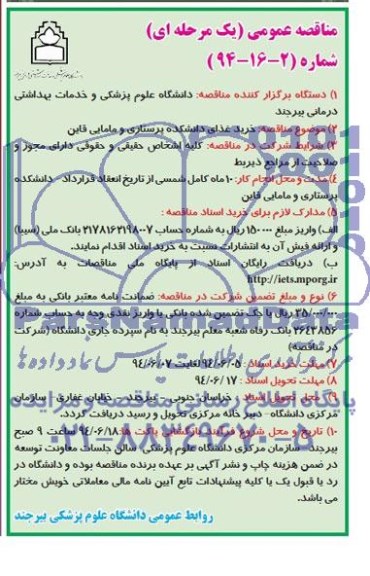 مناقصه عمومی (یک مرحله ای)
شماره (۲-۱۶-۹۴)
۱) دستگاه برگزار کننده مناقصه: دانشگاه علوم پزشکی و خدمات بهداشتی
درمانی بیرجند
۲) موضوع مناقصه: خرید غذای دانشکده پرستاری و مامایی قاین
۳) شرایط شرکت در مناقصه: کلیه اشخاص حقیقی و حقوقی دارای مجوز و
صلاحیت از مراجع ذیربط
۴) مدت و محل انجام کار: ۱۰ ماه کامل شمسی از تاریخ انعقاد قرارداد - دانشکده
پرستاری و مامایی قاین
۵) مدارک لازم برای خرید اسناد مناقصه :
الف) واریز مبلغ ۱۵۰۰۰۰ ریال به شماره حساب ۲۱۷۸۱۶۲۱۹۸۰۰۷ بانک ملی (سیبا)
و ارائه فیش آن به انتشارات نسبت به خرید اسناد اقدام نمایند.
ب) دریافت رایگان اسناد از پایگاه ملی مناقصات به آدرس:
http://iets.mporg.ir
۶) نوع و مبلغ تضمین شرکت در مناقصه: ضمانت نامه معتبر بانکی به مبلغ
۲۵/۰۰۰/۰۰۰ ریال یا چک تضمین شده بانکی یا واریز نقدی وجه به حساب شماره
۲۶۴۳۸۵۶ بانک رفاه شعبه معلم بیرجند به نام سپرده جاری دانشگاه (شرکت
در مناقصه)
۷) مهلت خرید اسناد : ۹۴/۰۶/۰۵ لغایت ۹۴/۰۶/۰۷
۸) مهلت تحویل اسناد : ۹۴/۰۶/۱۷
۹) محل تحویل اسناد : خراسان جنوبی - بیرجند - خیابان غفاری - سازمان
مرکزی دانشگاه - دبیرخانه مرکزی تحویل و رسید دریافت گردد.
۱۰) تاریخ و محل شروع فرآیند بازگشایی پاکت ها: ۹۴/۰۶/۱۸ ساعت ۹ صبح
بیرجند - سازمان مرکزی دانشگاه علوم پزشکی- سالن جلسات معاونت توسعه
در ضمن هزینه چاپ و نشر آگهی بر عهده برنده مناقصه بوده و دانشگاه در
رد یا قبول یک یا کلیه پیشنهادات تابع آیین نامه مالی معاملاتی خویش مختار
می باشد.
روابط عمومی دانشگاه علوم پزشکی بیرجند